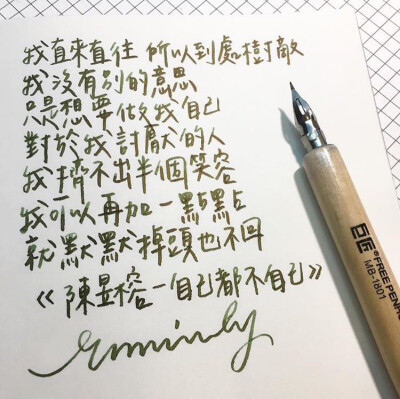 我直來直往 所以到處樹敵
我沒有別的意思
只是想要做我自己
對於我討厭的人
我擠不出半個笑容
我可以再加一點點
就默默掉頭也不回
《陳昱榕－自己都不自己》
巨匠®FREE PENHO
MB-1801